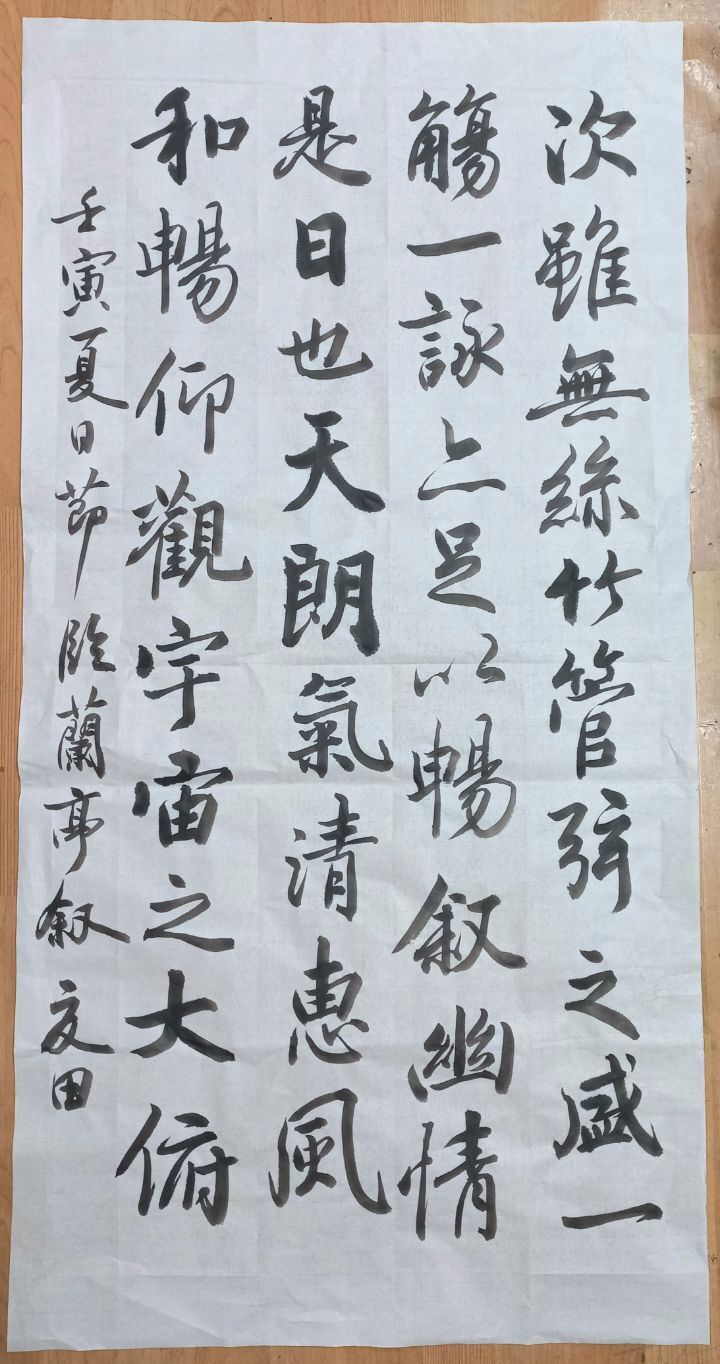 次雖無絲竹管弦之盛一
觴一詠亦足以暢叙幽情
是日也天朗氣清惠風
和暢仰觀宇宙之大俯
壬寅夏日節臨蘭亭叙文田